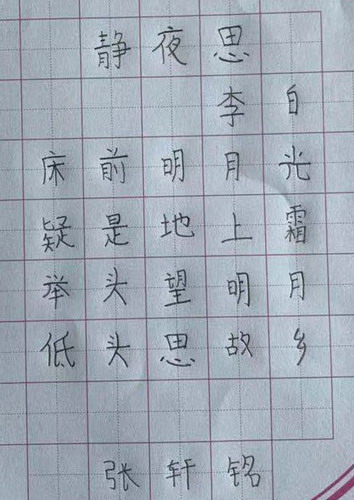 静夜思
李白
床前明月光
疑是地上霜
举头望明月
低头思故乡
张轩铭